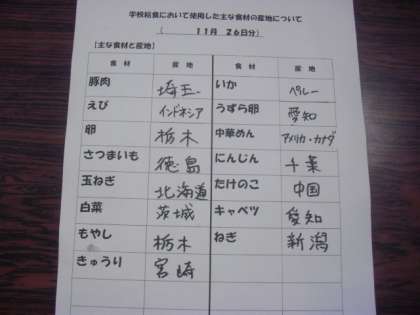 学校給食において使用した主な食材の産地について
( 11月 26日分)
[主な食材と産地]
食材 産地 食材 産地
豚肉 埼玉 いか ペルー
えび インドネシア うずら卵 愛知
卵 栃木 中華めん アメリカ・カナダ
さつまいも 徳島 にんじん 千葉
玉ねぎ 北海道 たけのこ 中国
白菜 茨城 キャベツ 愛知
もやし 栃木 ねぎ 新潟
きゅうり 宮崎